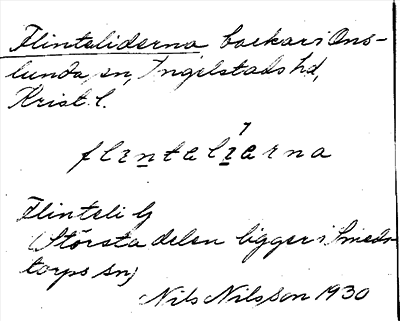 Flinteliderna, backar i Ons-
lunda, sn, Ingelstads hd,
Krist. l.
flintelierna
Flinteli
(Största delen ligger i Smeds-
torps sn)
Nils Nilsson 1930